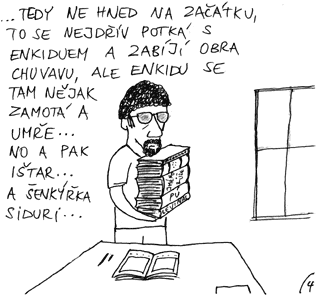 ...TEDY NE HNED NA ZAČÁTKU,
TO SE NEJDŘÍV POTKÁ S
ENKIDUEM A ZABÍJÍ OBRA
CHUVAVU, ALE ENKIDU SE
TAM NĚJAK
ZAMOTÁ A
UMŘE...
NO A PAK
IŠTAR...
A ŠENKÝŘKA
SIDURI...